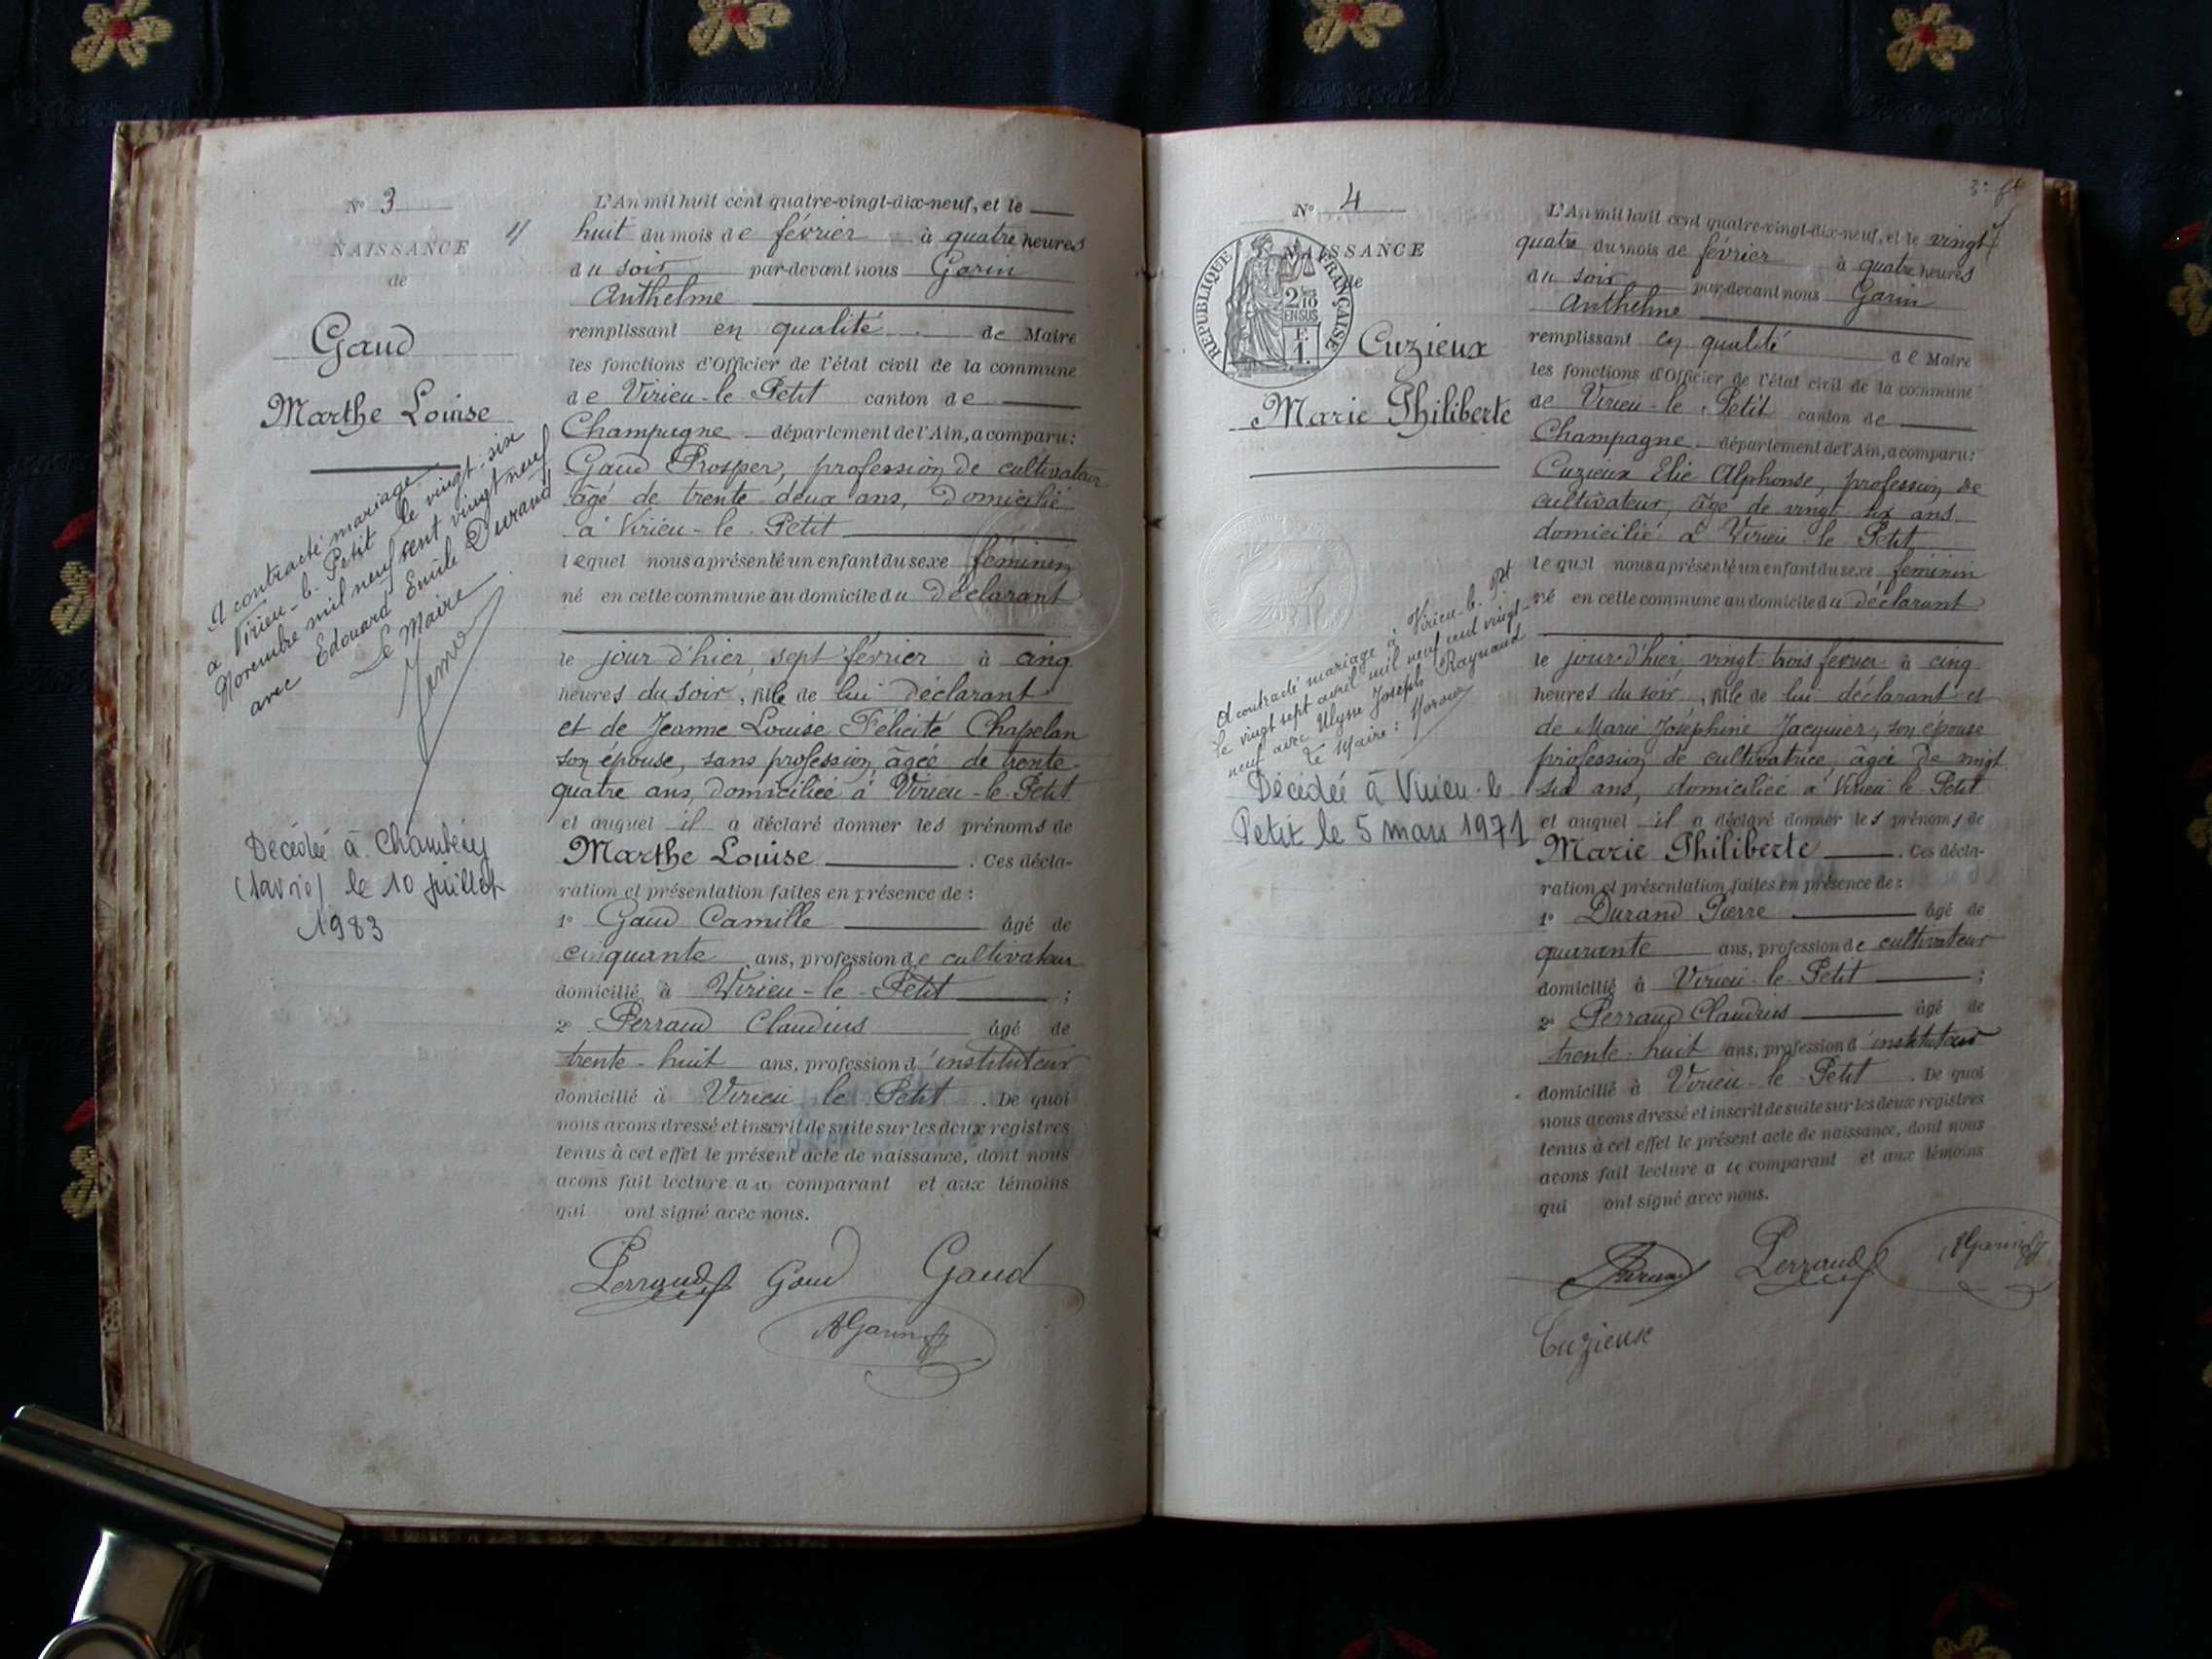 N° 3
NAISSANCE
de
Gaud
Marthe Louise
A contracté mariage
à Virieu-le-Petit le vingt-six
Novembre mil neuf cent vingt neuf
avec Edouard Emile Durand
Le Maire
Décédée à Chambéry
(Savoie) le 10 juillet
1983
L'An mil huit cent quatre-vingt-dix-neuf, et le
huit du mois de février à quatre heures
du soir par-devant nous Garin
Anthelme
remplissant en qualité de Maire
les fonctions d'Officier de l'état civil de la commune
de Virieu-le-Petit canton de
Champagne département de l'Ain, a comparu:
Gaud Prosper, profession de cultivateur
âgé de trente-deux ans, domicilié
à Virieu-le-Petit
lequel nous a présenté un enfant du sexe féminin
né en cette commune au domicile du déclarant
le jour d'hier, sept février à cinq
heures du soir, fille de lui déclarant
et de Jeanne Louise Félicité Chapelan
son épouse, sans profession âgée de trente-
quatre ans, domiciliée à Virieu-le-Petit
et auquel il a déclaré donner les prénoms de
Marthe Louise . Ces décla-
ration et présentation faites en présence de :
1° Gaud Camille âgé de
cinquante ans, profession de cultivateur
domicilié à Virieu-le-Petit ;
2° Perraud Claudius âgé de
trente-huit ans, profession d'instituteur
domicilié à Virieu le Petit . De quoi
nous avons dressé et inscrit de suite sur les deux registres
tenus à cet effet le présent acte de naissance, dont nous
avons fait lecture au comparant et aux témoins
qui ont signé avec nous.
Perraud Gaud Gaud
AGarin
N° 4
NAISSANCE
de
REPUBLIQUE FRANÇAISE
2/10
EN SUS
F.
1.
Cuzieux
Marie Philiberte
A contracté mariage à Virieu-le-Pt
le vingt sept avril mil neuf cent vingt-
neuf avec Ulysse Joseph Raynaud
Le Maire :
Décédée à Virieu-le
Petit le 5 mars 1971
L'An mil huit cent quatre-vingt-dix-neuf, et le vingt
quatre du mois de février à quatre heures
du soir par-devant nous Garin
Anthelme
remplissant en qualité de Maire
les fonctions d'Officier de l'état civil de la commune
de Virieu-le-Petit canton de
Champagne département de l'Ain, a comparu:
Cuzieux Elie Alphonse, profession de
cultivateur, âgé de vingt six ans
domicilié à Virieu-le Petit
lequel nous a présenté un enfant du sexe féminin
né en cette commune au domicile du déclarant
le jour d'hier, vingt trois février à cinq
heures du soir, fille de lui déclarant et
de Marie Joséphine Jacquier, son épouse
profession de cultivatrice, âgée de vingt
six ans, domiciliée à Virieu le Petit
et auquel il a déclaré donner les prénoms de
Marie Philiberte . Ces décla-
ration et présentation faites en présence de :
1° Durand Pierre âgé de
quarante ans, profession de cultivateur
domicilié à Virieu-le-Petit ;
2° Perraud Claudius âgé de
trente-huit ans, profession d'instituteur
domicilié à Virieu-le-Petit . De quoi
nous avons dressé et inscrit de suite sur les deux registres
tenus à cet effet le présent acte de naissance, dont nous
avons fait lecture au comparant et aux témoins
qui ont signé avec nous.
Durand Perraud AGarin
Cuzieux